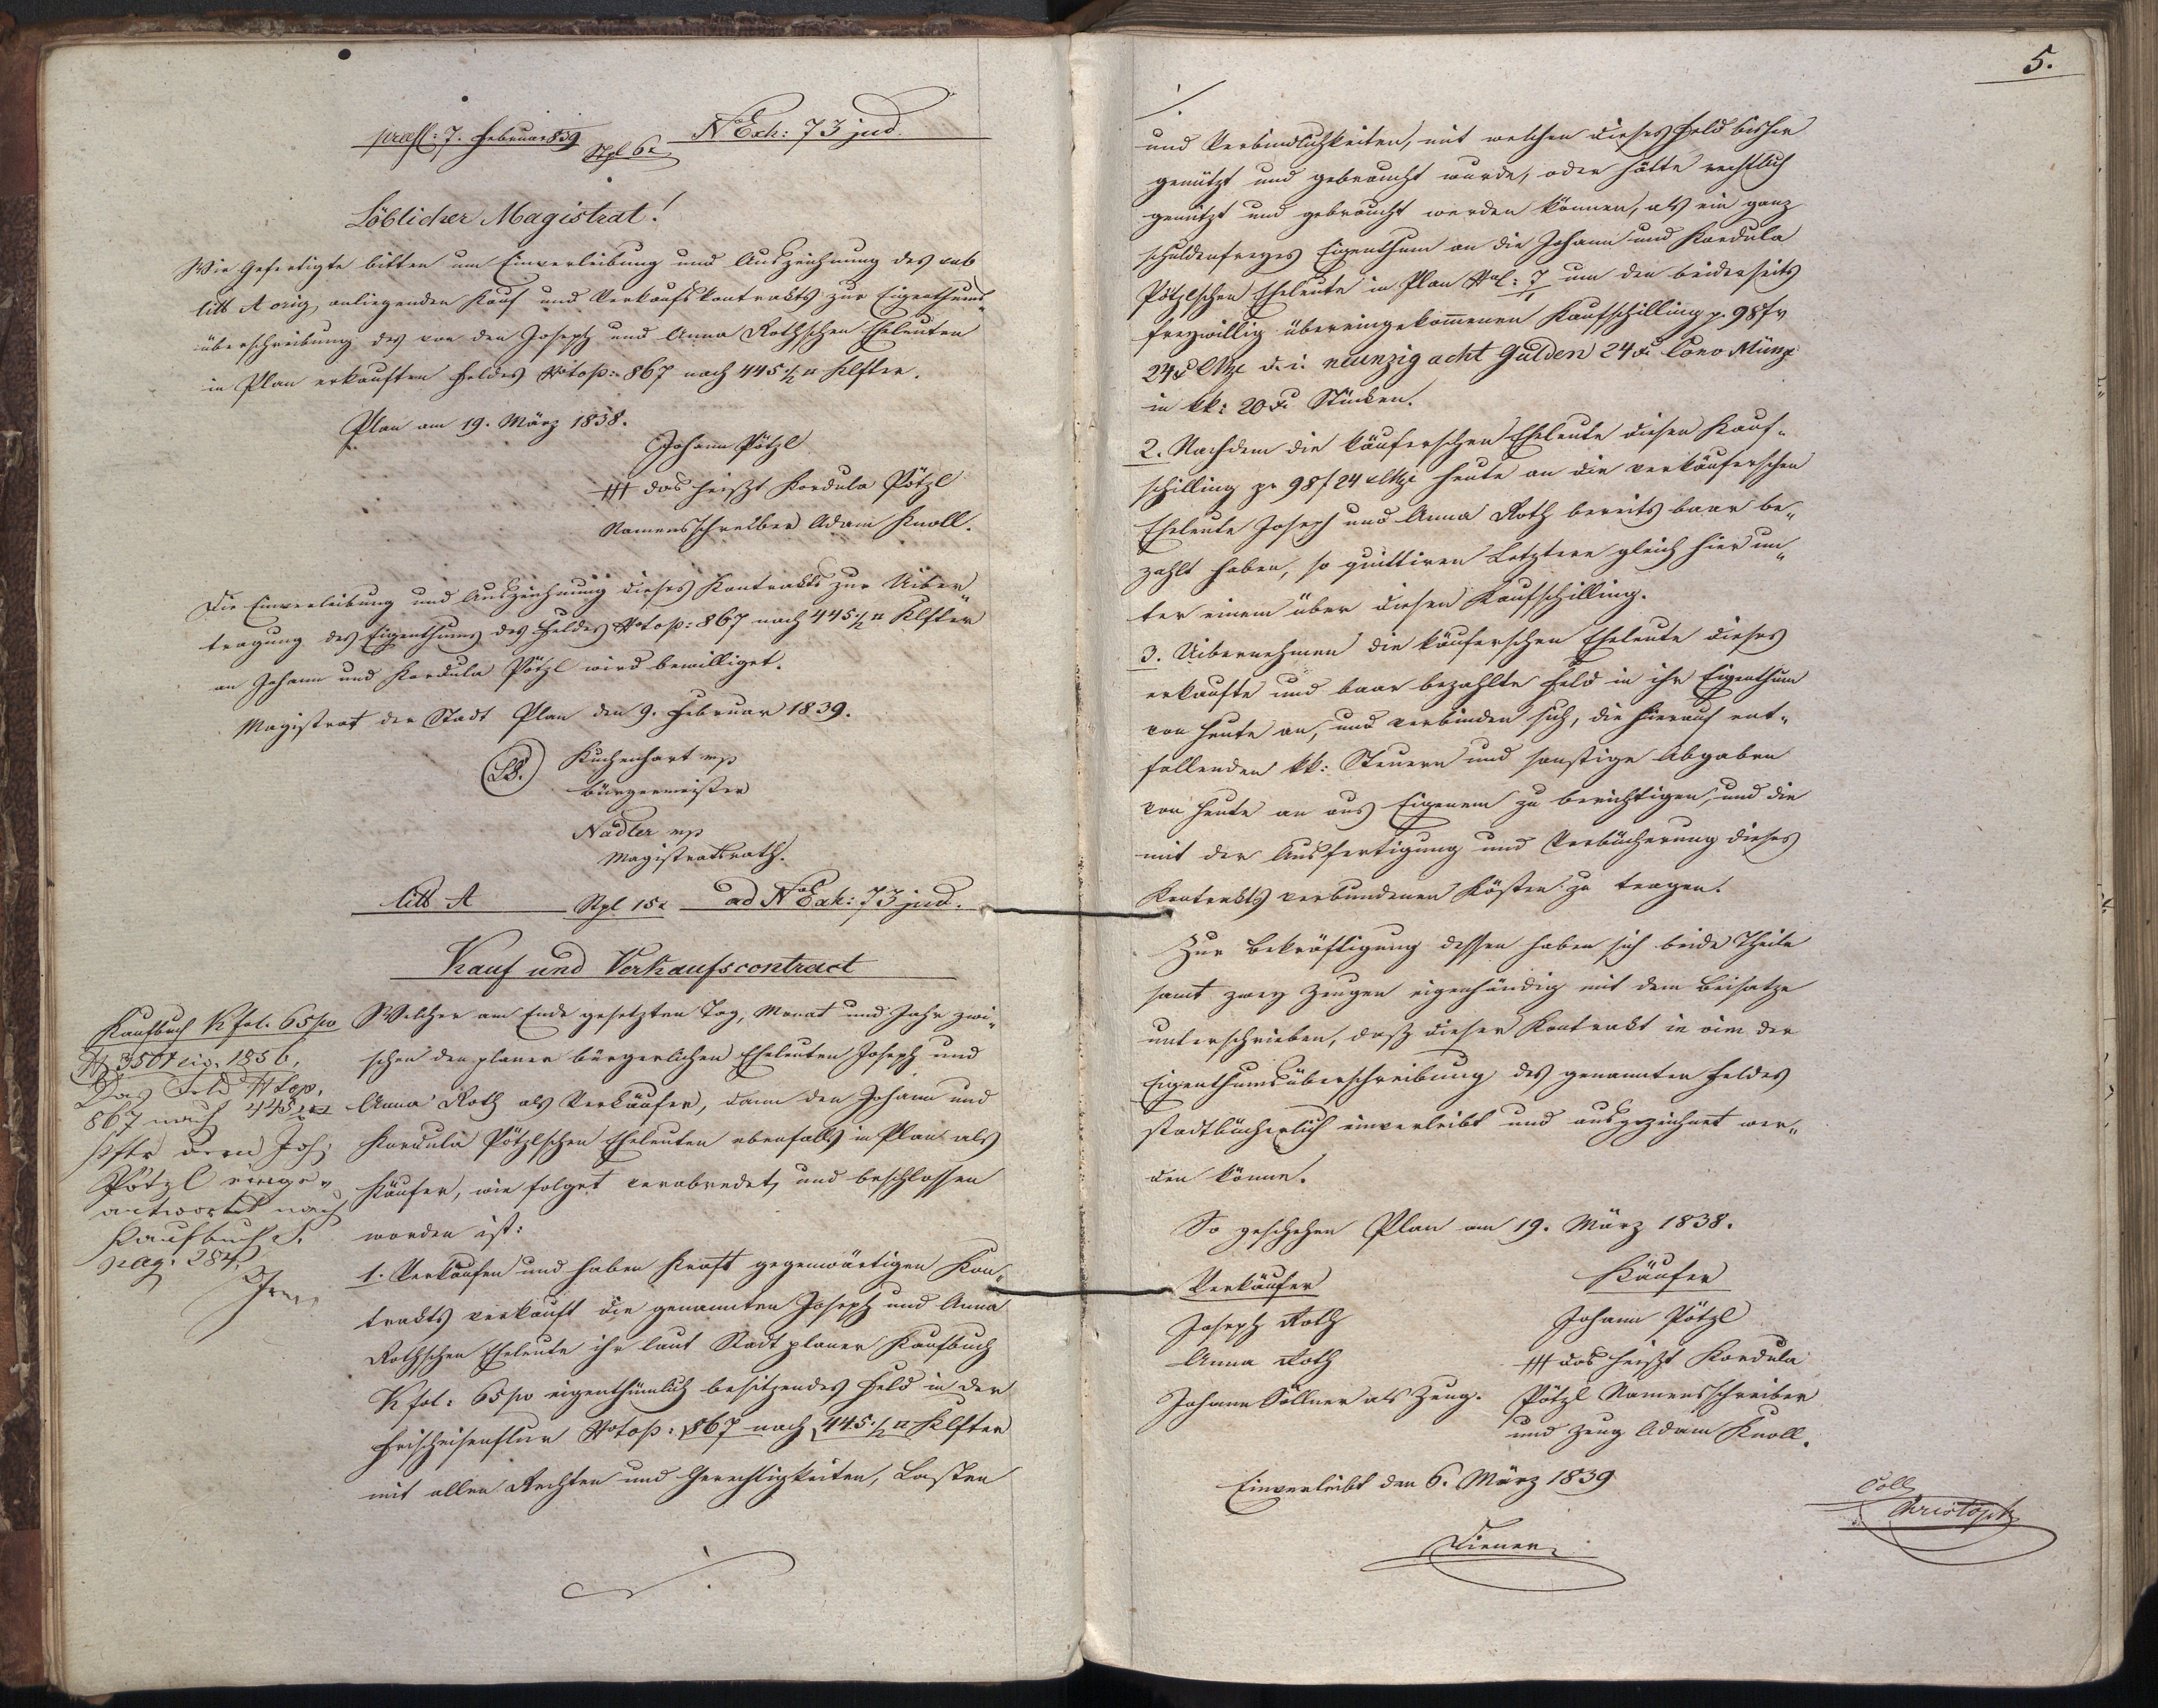 praes: 7. Februar 839 Stpl 6x N Exh: 73 jud.
Löblicher Magistrat!
Wir Gefertigte bitten um Einverleibung und Auszeichnung des sub
litt A orig anliegenden Kauf und Verkaufskontrakts zur Eigenthums„
überschreibung des von den Joseph und Anna Rothschen Eheleuten
in Plan erkauften Feldes Ntop: 867 nach 445 1/2 □ Klfter.
Plan am 19. März 1838.
Johann Pötzl
+++ das heißt Kordula Pötzl
Namensschreiber Adam Knoll.
Die Einverleibung und Auszeichnung dieses Kontrakts zur Uiber„
tragung des Eigenthums des Feldes Ntop: 867 nach 445 1/2 □ Klfter
an Johann und Kordula Pötzl wird bewilliget.
Magistrat der Stadt Plan den 9. Februar 1839.
LS. Kuchenhart mp
Bürgermeister
Nadler mp
Magistratsrath.
litt A Stpl 15x ad N Exh: 73 jud.
Kauf und Verkaufscontract
Kaufbuch K fol. 65 p
3501 1856.
Das Feld Ntop.
867 nach 445 1/2 □
dem Joh:
Pötzl einge„
antwortet nach
Kaufbuch
pag. 284.
Welcher am Ende gesetzten Tag, Monat und Jahr zwi„
schen den planer bürgerlichen Eheleuten Joseph und
Anna Roth als Verkäufer, dann den Johann und
Kordula Pötzlschen Eheleuten ebenfalls in Plan als
Käufer, wie folget verabredet, und beschlossen
worden ist:
1. Verkaufen und haben Kraft gegenwärtigen Kon„
trakts verkauft die genannten Joseph und Anna
Rothschen Eheleute ihr laut Stadt planer Kaufbuch
K fol: 65 p eigenthümlich besitzendes Feld in der
Ntop: 867 nach 445 1/2 □ Klfter
mit allen Rechten und Gerechtigkeiten, Lasten
./.
5.
./.
und Verbindlichkeiten, mit welchen dieses Feld bisher
genützt und gebraucht wurde, oder hätte rechtlich
genützt und gebraucht werden können, als ein ganz
schuldenfreyes Eigenthum an die Johann und Kordula
Pötzlschen Eheleute in Plan um den beiderseits
freywillig übereingekommenen Kaufschilling p. 98 fr
24 x CMze d. i. neunzig acht Gulden 24 xr Conv Münze
in kk: 20 xr Stücken.
2. Nachdem die käuferschen Eheleute diesen Kauf„
schilling pr 98 f 24 x CMze heute an die verkäuferschen
Eheleute Joseph und Anna Roth bereits baar be„
zahlt haben, so quittiren Letztere gleich hier un„
ter einem über diesen Kaufschilling.
3. Uibernehmen die käuferschen Eheleute dieses
erkaufte und baar bezahlte Feld in ihr Eigenthum
von heute an, und verbinden sich, die hierauf ent„
fallenden kk: Steuern und sonstige Abgaben
von heute an aus Eigenem zu berichtigen, und die
mit der Ausfertigung und Verbücherung dieses
Kontrakts verbundenen Kösten zu tragen.
Zur Bekräftigung dessen haben sich beide Theile
samt zwey Zeugen eigenhändig mit dem Beisatze
unterschrieben, daß dieser Kontrakt in vim der
Eigenthumsüberschreibung des genannten Feldes
stadtbücherlich einverleibt und ausgezeichnet wer„
den könne.
So geschehen Plan am 19. März 1838.
Verkäufer
Joseph Roth
Anna Roth
Johann Söllner als Zeug.
Käufer
Johann Pötzl
+++ das heißt Kordula
Pötzl Namensschreiber
und Zeug Adam Knoll.
Einverleibt den 6. März 1839
Diener
Coll
Christoph